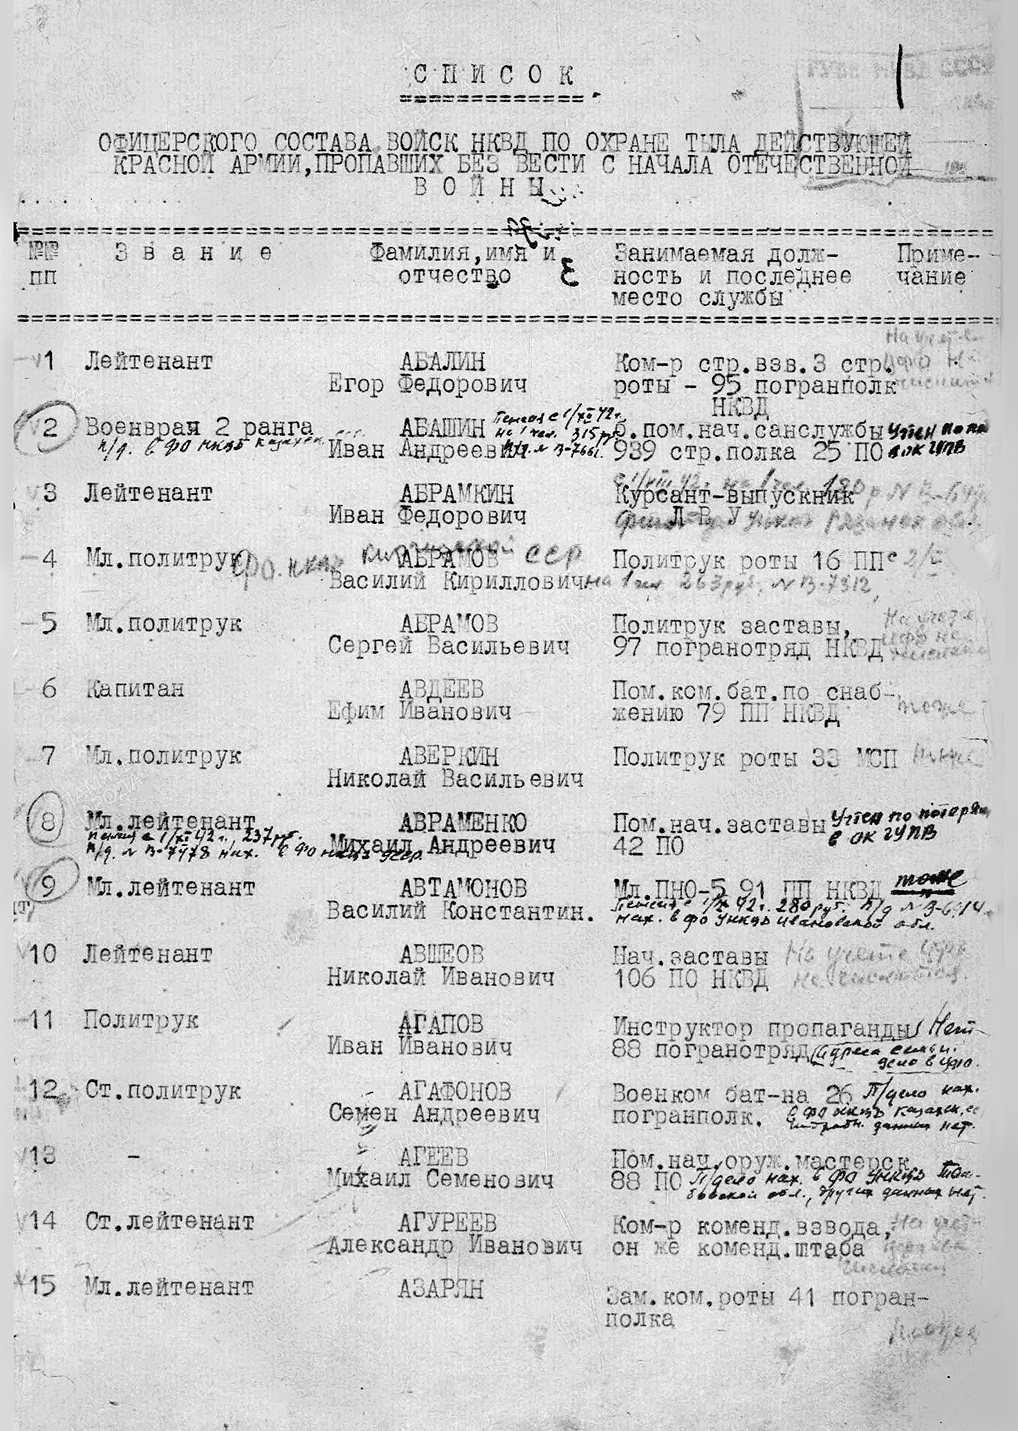 СПИСОК
ОФИЦЕРСКОГО СОСТАВА ВОЙСК НКВД ПО ОХРАНЕ ТЫЛА ДЕЙСТВУЮЩЕЙ
КРАСНОЙ АРМИИ, ПРОПАВШИХ БЕЗ ВЕСТИ С НАЧАЛА ОТЕЧЕСТВЕННОЙ
ВОЙНЫ
№№ Звание Фамилия, имя и Занимаемая долж- Приме-
пп отчество ность и последнее чание
место службы
1 Лейтенант АБАЛИН Ком-р стр.взв.3 стр.
Егор Федорович роты - 95 погранполк
НКВД
2 Военврач 2 ранга АБАШИН Пенсия с 1/XII 42г. б.пом.нач.санслужбы Учтен по
п/д. в ФО НКВД Иван Андреевич 939 стр.полка 25 ПО в ОК ГУПВ
3 Лейтенант АБРАМКИН Курсант-выпускник
Иван Федорович Л В У
4 Мл.политрук АБРАМОВ Политрук роты 16 ПП
ФО. НКВД Киргизской ССР
Василий Кириллович на 1 чел 263 руб. № В-7312
5 Мл.политрук АБРАМОВ Политрук заставы, На учете
Сергей Васильевич 97 погранотряд НКВД
6 Капитан АВДЕЕВ Пом.ком.бат.по снаб- тоже
Ефим Иванович жению 79 ПП НКВД
7 Мл.политрук АВЕРКИН Политрук роты 33 МСП
Николай Васильевич
8 Мл.лейтенант АВРАМЕНКО Пом.нач.заставы Учтен по потерям
Пенсия с 1/XII 42г., 237 руб. Михаил Андреевич 42 ПО в ОК ГУПВ
п/д. № В-7478 нах. в ФО НКВД
9 Мл.лейтенант АВТАМОНОВ Мл.ПНО-5 91 ПП НКВД тоже
Василий Константин. Пенсия с 42г. 280 руб. п/д №
нах. в ФО УНКВД Ивановской обл.
10 Лейтенант АВШЕОВ Нач.заставы На учете УФО
Николай Иванович 106 ПО НКВД не числится.
11 Политрук АГАПОВ Инструктор пропаганды Нет
Иван Иванович 88 погранотряд адреса семьи.
дело в ЦФО.
12 Ст.политрук АГАФОНОВ Военком бат-на 26 П/дело нах.
Семен Андреевич погранполк. в ФО НКВД Казахск.
данных нет.
13 - АГЕЕВ Пом.нач.оруж.мастерск
Михаил Семенович 88 ПО П/дело нах. в ФО УНКВД Там-
бовской обл., других данных нет.
14 Ст.лейтенант АГУРЕЕВ Ком-р коменд.взвода,
Александр Иванович он же коменд.штаба
15 Мл.лейтенант АЗАРЯН Зам.ком.роты 41 погран-
полка